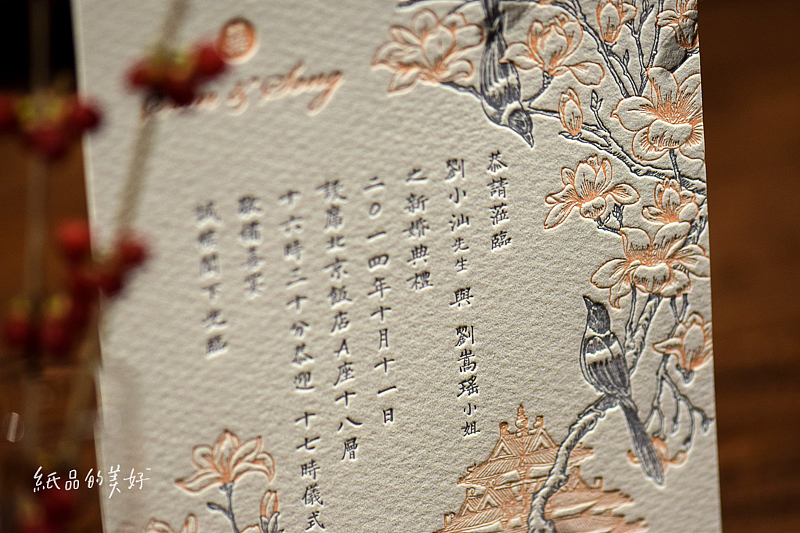 囍
& Song
恭請蒞臨
劉小汕先生 與 劉嵩瑤小姐
之新婚典禮
二〇一四年十月十一日
設席北京飯店A座十八層
十六時二十分恭迎 十七時儀式
敬備喜宴
誠邀閣下光臨
紙品的美好